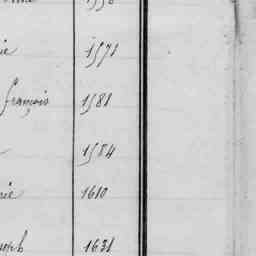 ie 1571
françois 1581
1584
rie 1610
1631